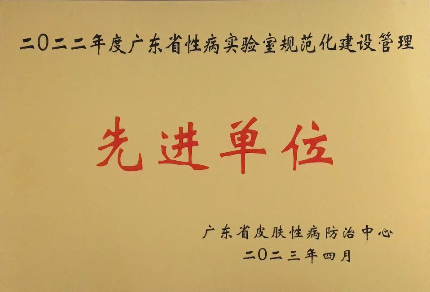 二〇二二年度广东省性病实验室规范化建设管理
先进单位
广东省皮肤性病防治中心
二〇二三年四月